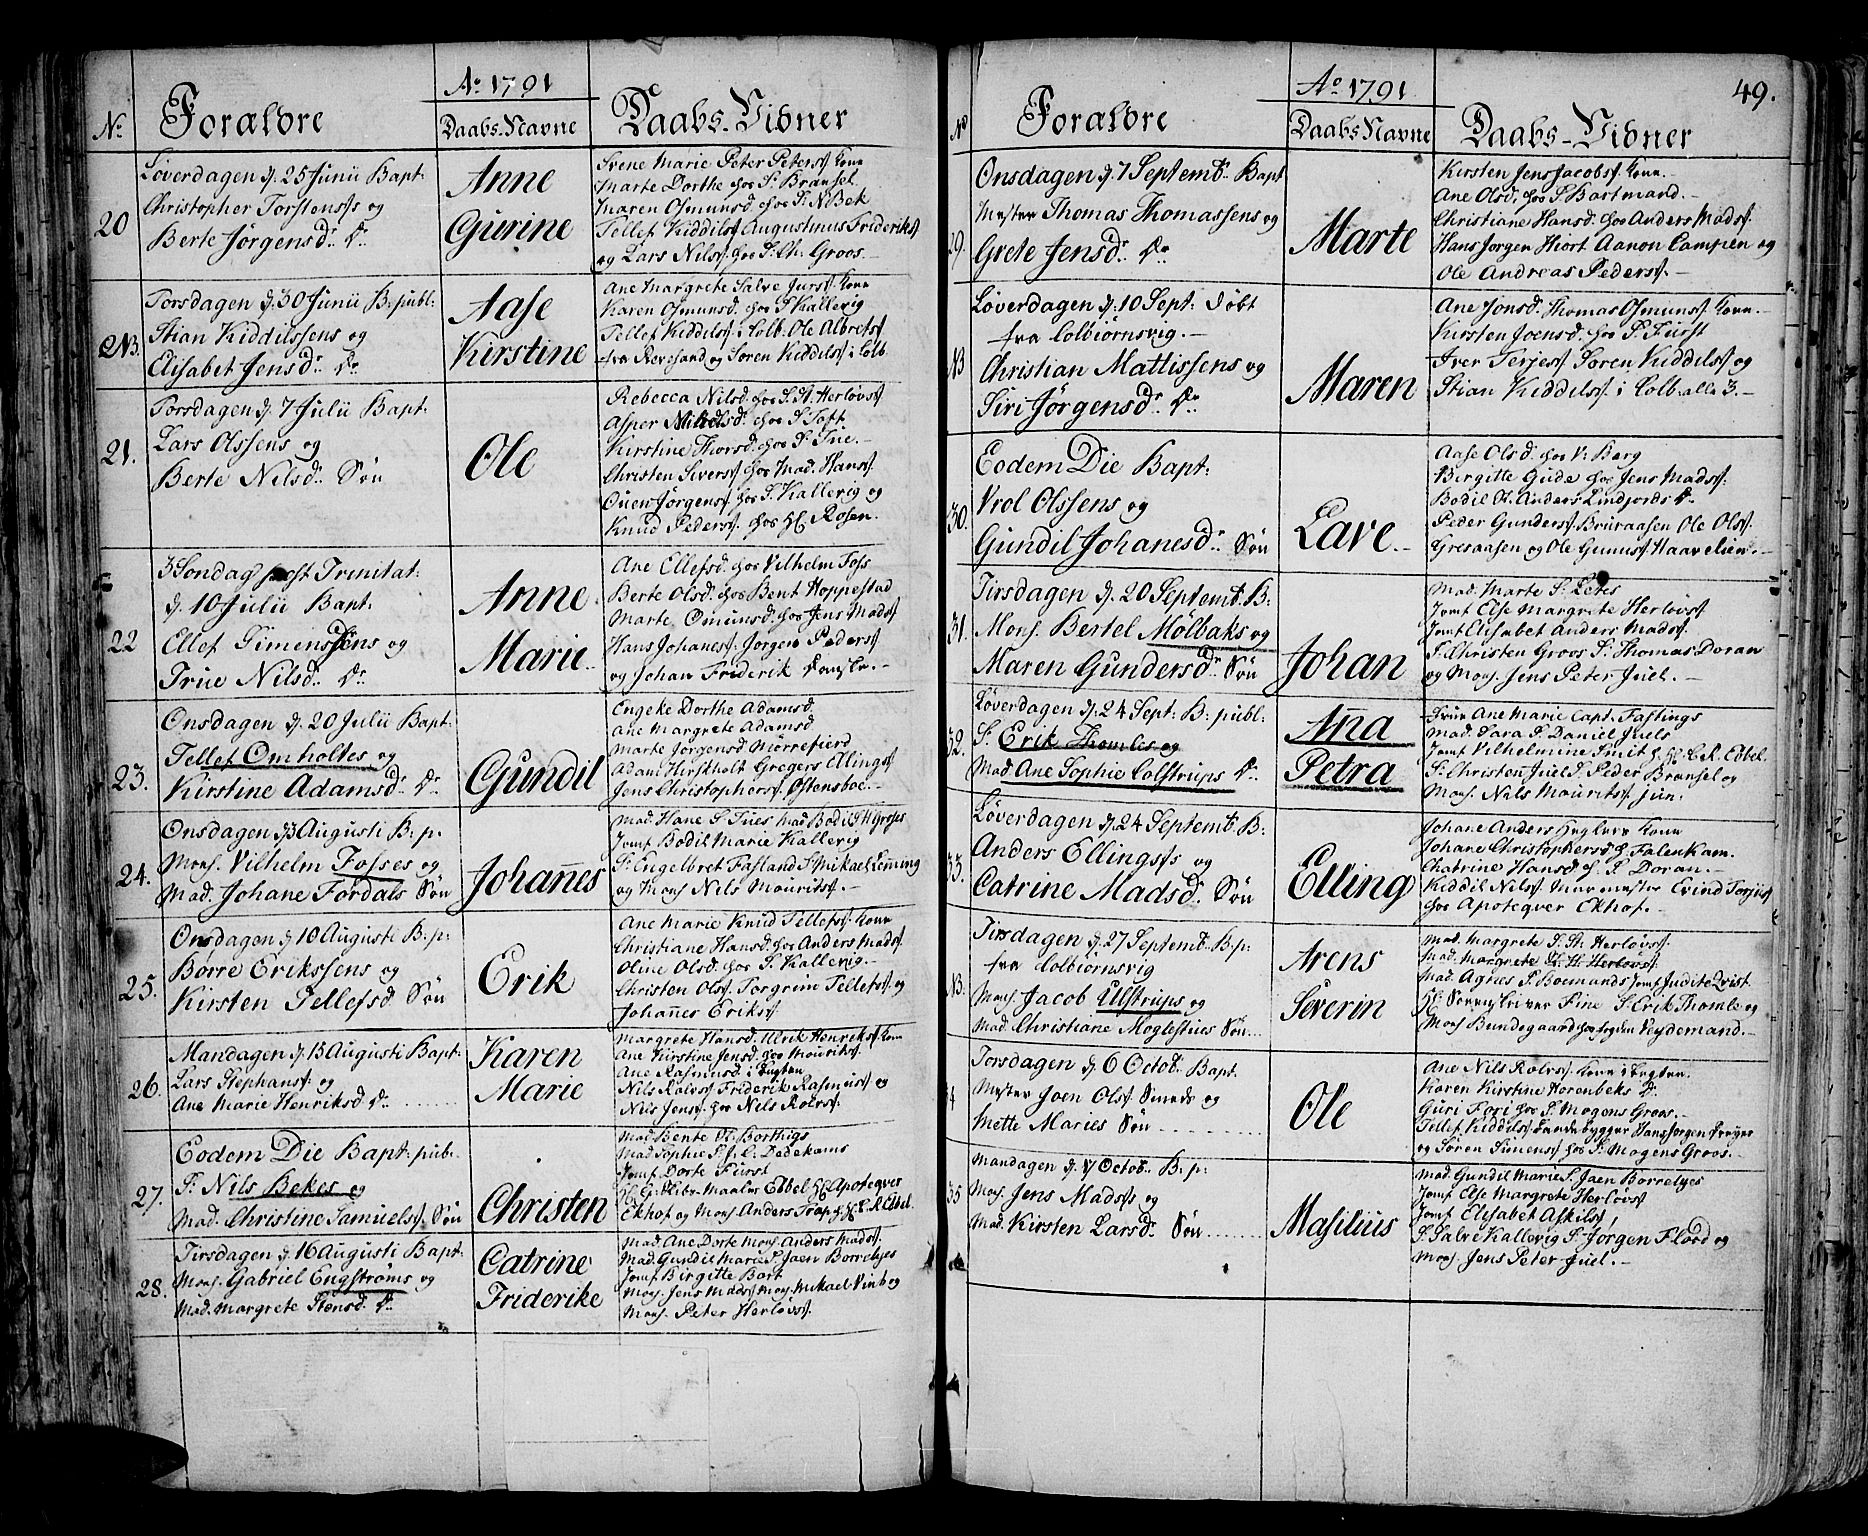 Aº 1791
Nº Forældre Daabs-Navne Daabs-Vidner
20
Løverdagen d. 25 Junii Bapt:
Christopher Torstenss og
Berte Jørgensd. Dr
Anne
Gurine
Svene Marie Peter Peterss Kone
Marte Dorthe hos S. Bransel
Maren Osmunsd hos S. N Bek
Tellef Kiddilss Augustinus Frideriks
og Lars Nilss. hos S. Ch. Groos.
NB.
Torsdagen d. 30 Junii B: publ:
Stian Kiddilssens og
Elisabet Jensd. Dr
Aase
Kirstine
Ane Margrete Salve Jurss. Kone
Karen Osmunsd hos S Kallevig
Tellef Kiddilss i Colb. Ole Albretss
fra Revesand og Søren Kiddilss i Colb.
21.
Torsdagen d. 7 Julii Bapt:
Lars Olssens og
Berte Nilsd. Søn
Ole
Rebecca Nilsd. hos S. St. Herløvss
Asper Nilsd. hos S Toft.
Kirstine Thorsd. hos S. Tue.
Christen Sivers. hos Mad. Hanss.
Ouen Jørgenss. hos S. Kallevig og
Knud Pederss. hos H. Rosen.
22
3 Søndag post Trinitat:
d. 10 Julii Bapt.
Ellef Simenssens og
True Nilsd. Dr
Anne
Marie
Ane Ellefsd. hos Vilhelm Foss
Berte Olsd. hos Bent Hoppestad
Marte Omunsd. hos Jens Madss
Hans Johaness. Jørgen Pederss
og Johan Friderik
23.
Onsdagen d. 20 Julii Bapt:
Tellef Omholtes og
Kirstine Adamsd. Dr
Gundil
Engeke Dorthe Adamsd
Ane Margrete Adamsd
Marte Jørgensd Mørrefierd
Adam Hirskholt Gregers Ellings
Jens Christophers. Østensboe.
24.
Onsdagen d. 3 Augusti B: p.
Mons. Vilhelm Fosses og
Mad. Johane Fordals Søn
Johañes
Mad. Hane S Tues Mad Bodil H Groses
Jomf Bodil Marie Kallevig
S. Engelbret Fasland S. Mikael Lemming
og Mons Nils Mouritss.
25.
Onsdagen d. 10 Augusti B: p:
Børre Erikssens og
Kirsten Tellefsd Søn
Erik
Ane Marie Knud Tellefss. Kone
Christiane Hansd. hos Anders Madss
Oline Olsd. hos S. Kallevig.
Christen Olss Torgrim Tellefss og
Johañes Erikss
26.
Mandagen d. 15 Augusti Bapt:
Lars Stephanss og
Ane Marie Henriksd Dr
Karen
Marie
Margrete Hansd. Ulrik Henrikss Kone
Ane Kirstine Jensd. hos Mouritss.
Ane Rasmusd. i Engten
Nils Rolvss Friderik Rasmuss og
Nils Jenss. hos Nils Rolvss.
27.
Eodem Die Bapt: pub:
S. Nils Bekes og
Mad. Christine Samuels. Søn
Christen
Mad Bente Ol. Borthigs
Mad Sophie S. f. C. Dedekams
Jomf Dorte Fürst
Maalev Edbel H. Apoteqver
Ekhof og Mons Anders Trap
28.
Tirsdagen d. 16 Augusti Bapt:
Mons. Gabriel Engstrøms og
Mad. Margrete Stensd. Dr
Catrine
Friderike
Mad. Ane Dorte Mons. Anders Madss.
Mad. Gundil Marie S. Jaen Borrebyes
Jomf Birgitte Bort
Mons. Jens Madss Mons. Mikael Vinb og
Mons. Peter Herløvss.
49.
Aº 1791
Nº Forældre Daabs-Navne Daabs-Vidner
29.
Onsdagen d. 7 Septembr. Bapt
Mester Thomas Thomassens og
Grete Jensd. Dr
Marte
Kirsten Jens Jacobss. Kone.
Ane Olsd. hos S Bartmand.
Christiane Hansd. hos Anders Madss.
Hans Jørgen Hiort Aanon Campien og
Ole Andreas Pederss.
NB
Løverdagen d. 10 Sept: døbt
fra Colbiørnsvig.
Christian Mattissens og
Siri Jørgensd. Dr
Maren
Ane Jonsd. Thomas Osmunss. Kone.
Kirsten Joensd. hos S. Fürst
Iver Terjess. Søren Kiddilss og
Stian Kiddilss. i Colb. alle 3.
30.
Eodem Die Bapt:
Vrol Olssens og
Gundil Johanesd. Søn
Lave.
Aase Olsd. hos V. Berg
Birgitte Gude hos Jens Madss.
Bodil Ol. Anders Lindjords Dr
Peder Gunderss. Bruraasen Ole Olss.
Gresaasen og Ole Gunuss. Haavelien.
31.
Tirsdagen d. 20 Septembr. B:
Mons. Bertel Molbaks og
Maren Gundersd. Søn
Johan
Mad. Marte S. Letes
Jomf Else Margrete Herløvss
Jomf Elisabet Anders Madss.
S. Christen Groos S. Thomas Doran
og Mons. Jens Peter Juel.
32.
Løverdagen d. 24 Sept: B: publ:
S. Erik Thomles og
Mad. Ane Sophie Colstrups Dr.
Aña
Petra
Frue Ane Marie Capt. Fastings
Mad. Sara S. Daniel Juels
Jomf Vilhelmine Smit H. C. R. Edbel.
S. Christen Juel S. Peder Bransel og
Mons. Nils Mouritss. jun.
33.
Løverdagen d. 24 Septembr. B:
Anders Ellingss og
Catrine Madsd. Søn
Elling
Johane Anders Kone
Johane Christophersd H. Falenkam.
Chatrine Hansd H. S. Doran.
Kiddil Nilss. Murmester Evind Torjuss
hos Apoteqver Ekhof.
NB.
Tirsdagen d. 27 Septembr. B: p:
fra Colbiørnsvig
Mons. Jacob Ulstrups og
Mad. Christiane Moglestues Søn
Arens
Severin
Mad. Margrete S. St. Herløvss.
Mad. Margrete H. H. Herløvss.
Mad. Agnes P. Boemands Jomf Judite Qvist
H. Sorenskriver Fine S. Erik Thomle og
Mons Bundegaard hos Veydemand.
34
Torsdagen d. 6 Octobr. Bapt.
Mester Joen Olss Smeds og
Mette Maries Søn
Ole
Ane Nils Rolvss. Kone i Engten.
Karen Kirstine Horenbeks Dr
Guri Fori hos S. Mogens Groos.
Tellef Kiddilss. Hans Jørgen Dreyer
og Søren Simenss. hos S. Mogens Groos.
35
Mandagen d. 17 Octobr. B: p:
Mons. Jens Madss og
Mad. Kirsten Larsd. Søn
Masilius
Mad. Gundil Marie S. Jaen Borrebyes
Jomf. Else Margrete Herløvss
Jomf. Elisabet Askilss,
S. Salve Kallevig S. Jørgen Flood og
Mons. Jens Peter Juel.